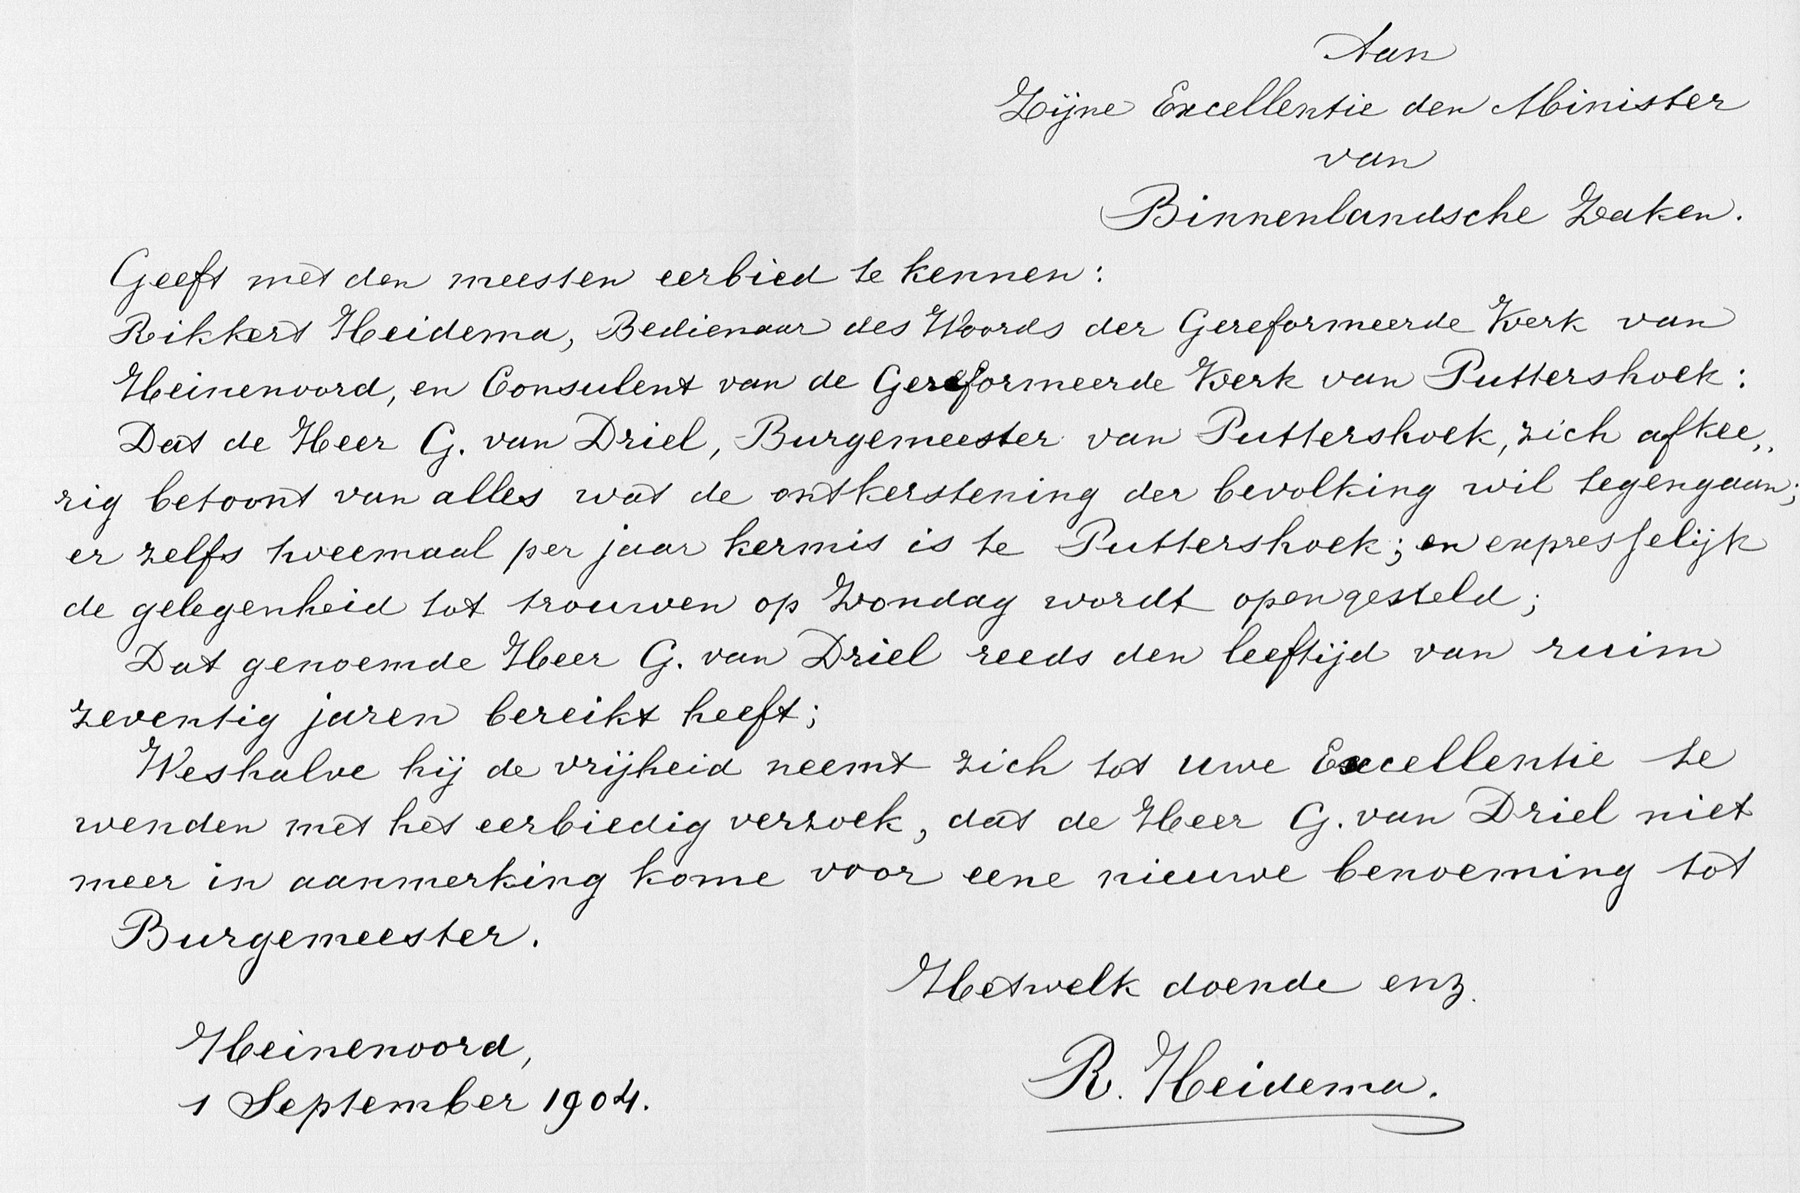 Aan
Zijne Excellentie den Minister
van
Binnenlandsche Zaken.
Geeft met den meesten eerbied te kennen:
Rikkert Heidema, Bedienaar des Woords der Gereformeerde Kerk van
Heinenoord, en Consulent van de Gereformeerde Kerk van Puttershoek:
Dat de Heer G. van Driel, Burgemeester van Puttershoek, zich afkee„
rig betoont van alles wat de ontkerstening der bevolking wil tegengaan;
er zelfs tweemaal per jaar kermis is te Puttershoek; en expresselijk
de gelegenheid tot trouwen op Zondag wordt opengesteld;
Dat genoemde Heer G. van Driel reeds den leeftijd van ruim
zeventig jaren bereikt heeft;
Weshalve hij de vrijheid neemt zich tot uwe Excellentie te
wenden met het eerbiedig verzoek, dat de Heer G. van Driel niet
meer in aanmerking kome voor eene nieuwe benoeming tot
Burgemeester.
Hetwelk doende enz.
Heinenoord,
1 September 1904.
R. Heidema.